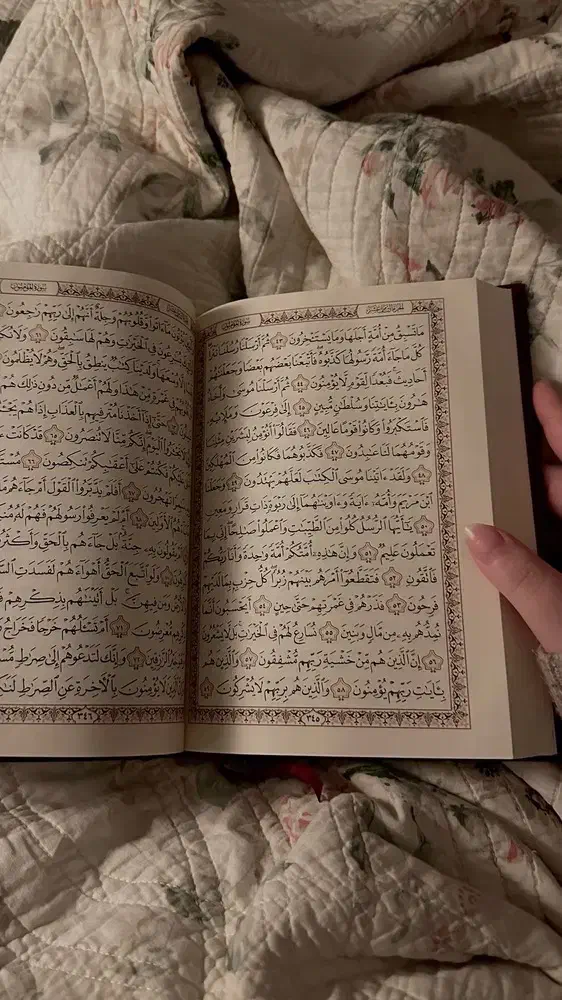 الجزء الثامن عشر
سورة المؤمنون
مَا تَسْبِقُ مِنْ أُمَّةٍ أَجَلَهَا وَمَا يَسْتَـْٔخِرُونَ ٤٣ ثُمَّ أَرْسَلْنَا رُسُلَنَا تَتْرَا
كُلَّ مَا جَآءَ أُمَّةً رَّسُولُهَا كَذَّبُوهُ فَأَتْبَعْنَا بَعْضَهُم بَعْضًا وَجَعَلْنَٰهُمْ
أَحَادِيثَ فَبُعْدًا لِّقَوْمٍ لَّا يُؤْمِنُونَ ٤٤ ثُمَّ أَرْسَلْنَا مُوسَىٰ وَأَخَاهُ
هَٰرُونَ بِـَٔايَٰتِنَا وَسُلْطَٰنٍ مُّبِينٍ ٤٥ إِلَىٰ فِرْعَوْنَ وَمَلَإِي۟هِ
فَٱسْتَكْبَرُوا۟ وَكَانُوا۟ قَوْمًا عَالِينَ ٤٦ فَقَالُوٓا۟ أَنُؤْمِنُ لِبَشَرَيْنِ مِثْلِنَا
وَقَوْمُهُمَا لَنَا عَٰبِدُونَ ٤٧ فَكَذَّبُوهُمَا فَكَانُوا۟ مِنَ ٱلْمُهْلَكِينَ
٤٨ وَلَقَدْ ءَاتَيْنَا مُوسَى ٱلْكِتَٰبَ لَعَلَّهُمْ يَهْتَدُونَ ٤٩ وَجَعَلْنَا
ٱبْنَ مَرْيَمَ وَأُمَّهُۥٓ ءَايَةً وَءَاوَيْنَٰهُمَآ إِلَىٰ رَبْوَةٍ ذَاتِ قَرَارٍ وَمَعِينٍ
٥٠ يَٰٓأَيُّهَا ٱلرُّسُلُ كُلُوا۟ مِنَ ٱلطَّيِّبَٰتِ وَٱعْمَلُوا۟ صَٰلِحًا إِنِّي بِمَا
تَعْمَلُونَ عَلِيمٌ ٥١ وَإِنَّ هَٰذِهِۦٓ أُمَّتُكُمْ أُمَّةً وَٰحِدَةً وَأَنَا۠ رَبُّكُمْ
فَٱتَّقُونِ ٥٢ فَتَقَطَّعُوٓا۟ أَمْرَهُم بَيْنَهُمْ زُبُرًا كُلُّ حِزْبٍۭ بِمَا لَدَيْهِمْ
فَرِحُونَ ٥٣ فَذَرْهُمْ فِي غَمْرَتِهِمْ حَتَّىٰ حِينٍ ٥٤ أَيَحْسَبُونَ أَنَّمَا
نُمِدُّهُم بِهِۦ مِن مَّالٍ وَبَنِينَ ٥٥ نُسَارِعُ لَهُمْ فِي ٱلْخَيْرَٰتِ بَل لَّا يَشْعُرُونَ
٥٦ إِنَّ ٱلَّذِينَ هُم مِّنْ خَشْيَةِ رَبِّهِم مُّشْفِقُونَ ٥٧ وَٱلَّذِينَ هُم
بِـَٔايَٰتِ رَبِّهِمْ يُؤْمِنُونَ ٥٨ وَٱلَّذِينَ هُم بِرَبِّهِمْ لَا يُشْرِكُونَ ٥٩
٣٤٥
سورة المؤمنون
مَآ ءَاتَوا۟ وَّقُلُوبُهُمْ وَجِلَةٌ أَنَّهُمْ إِلَىٰ رَبِّهِمْ رَٰجِعُونَ
يُسَٰرِعُونَ فِي ٱلْخَيْرَٰتِ وَهُمْ لَهَا سَٰبِقُونَ ٦١ وَلَا
وُسْعَهَا وَلَدَيْنَا كِتَٰبٌ يَنطِقُ بِٱلْحَقِّ وَهُمْ لَا يُظْلَمُونَ
فِي غَمْرَةٍ مِّنْ هَٰذَا وَلَهُمْ أَعْمَٰلٌ مِّن دُونِ ذَٰلِكَ هُمْ
حَتَّىٰٓ إِذَآ أَخَذْنَا مُتْرَفِيهِم بِٱلْعَذَابِ إِذَا هُمْ
ٱلْيَوْمَ إِنَّكُم مِّنَّا لَا تُنصَرُونَ ٦٥ قَدْ كَانَتْ
عَلَيْكُمْ فَكُنتُمْ عَلَىٰٓ أَعْقَٰبِكُمْ تَنكِصُونَ ٦٦
تَهْجُرُونَ ٦٧ أَفَلَمْ يَدَّبَّرُوا۟ ٱلْقَوْلَ أَمْ جَآءَهُم مَّا
ٱلْأَوَّلِينَ ٦٨ أَمْ لَمْ يَعْرِفُوا۟ رَسُولَهُمْ فَهُمْ لَهُۥ
يَقُولُونَ بِهِۦ جِنَّةٌۢ بَلْ جَآءَهُم بِٱلْحَقِّ
وَلَوِ ٱتَّبَعَ ٱلْحَقُّ أَهْوَآءَهُمْ لَفَسَدَتِ
وَمَن فِيهِنَّ بَلْ أَتَيْنَٰهُم بِذِكْرِهِمْ
مُّعْرِضُونَ ٧١ أَمْ تَسْـَٔلُهُمْ خَرْجًا فَخَرَاجُ
ٱلرَّٰزِقِينَ ٧٢ وَإِنَّكَ لَتَدْعُوهُمْ إِلَىٰ صِرَٰطٍ
ٱلَّذِينَ لَا يُؤْمِنُونَ بِٱلْـَٔاخِرَةِ عَنِ ٱلصِّرَٰطِ
٣٤٦